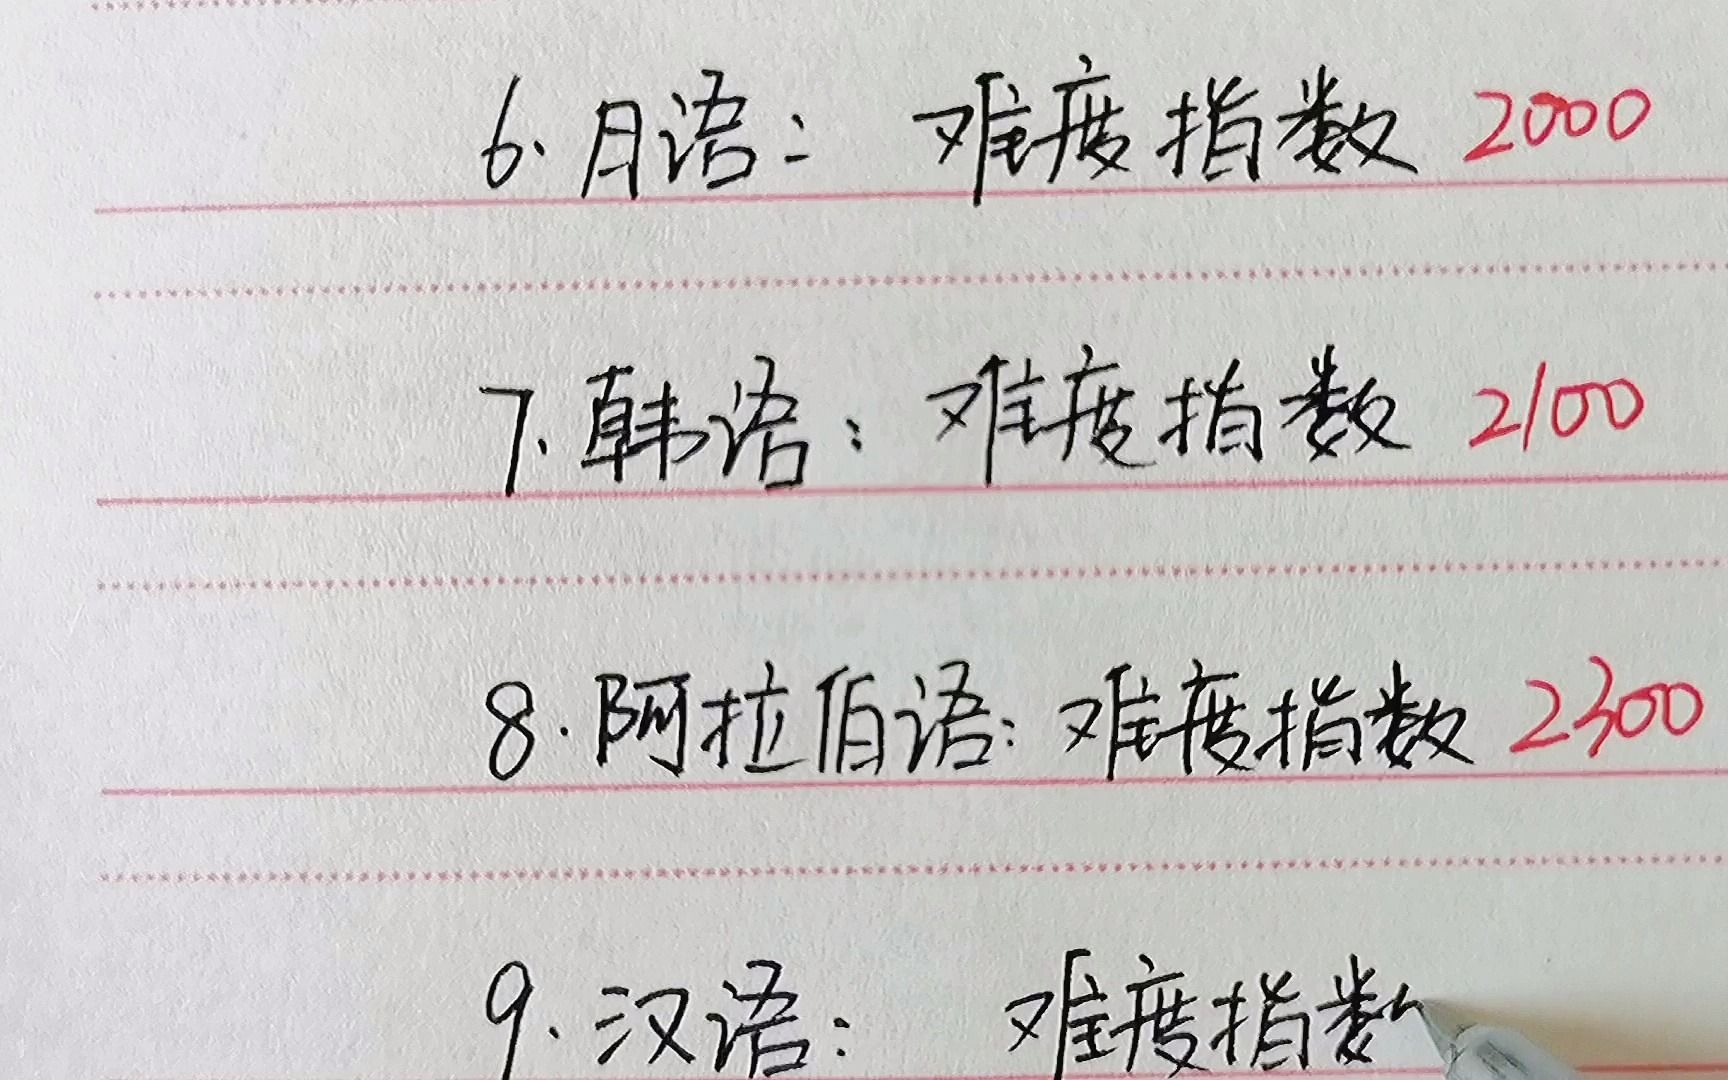 6.日语：难度指数 2000
7.韩语：难度指数 2100
8.阿拉伯语：难度指数 2300
9.汉语：难度指数